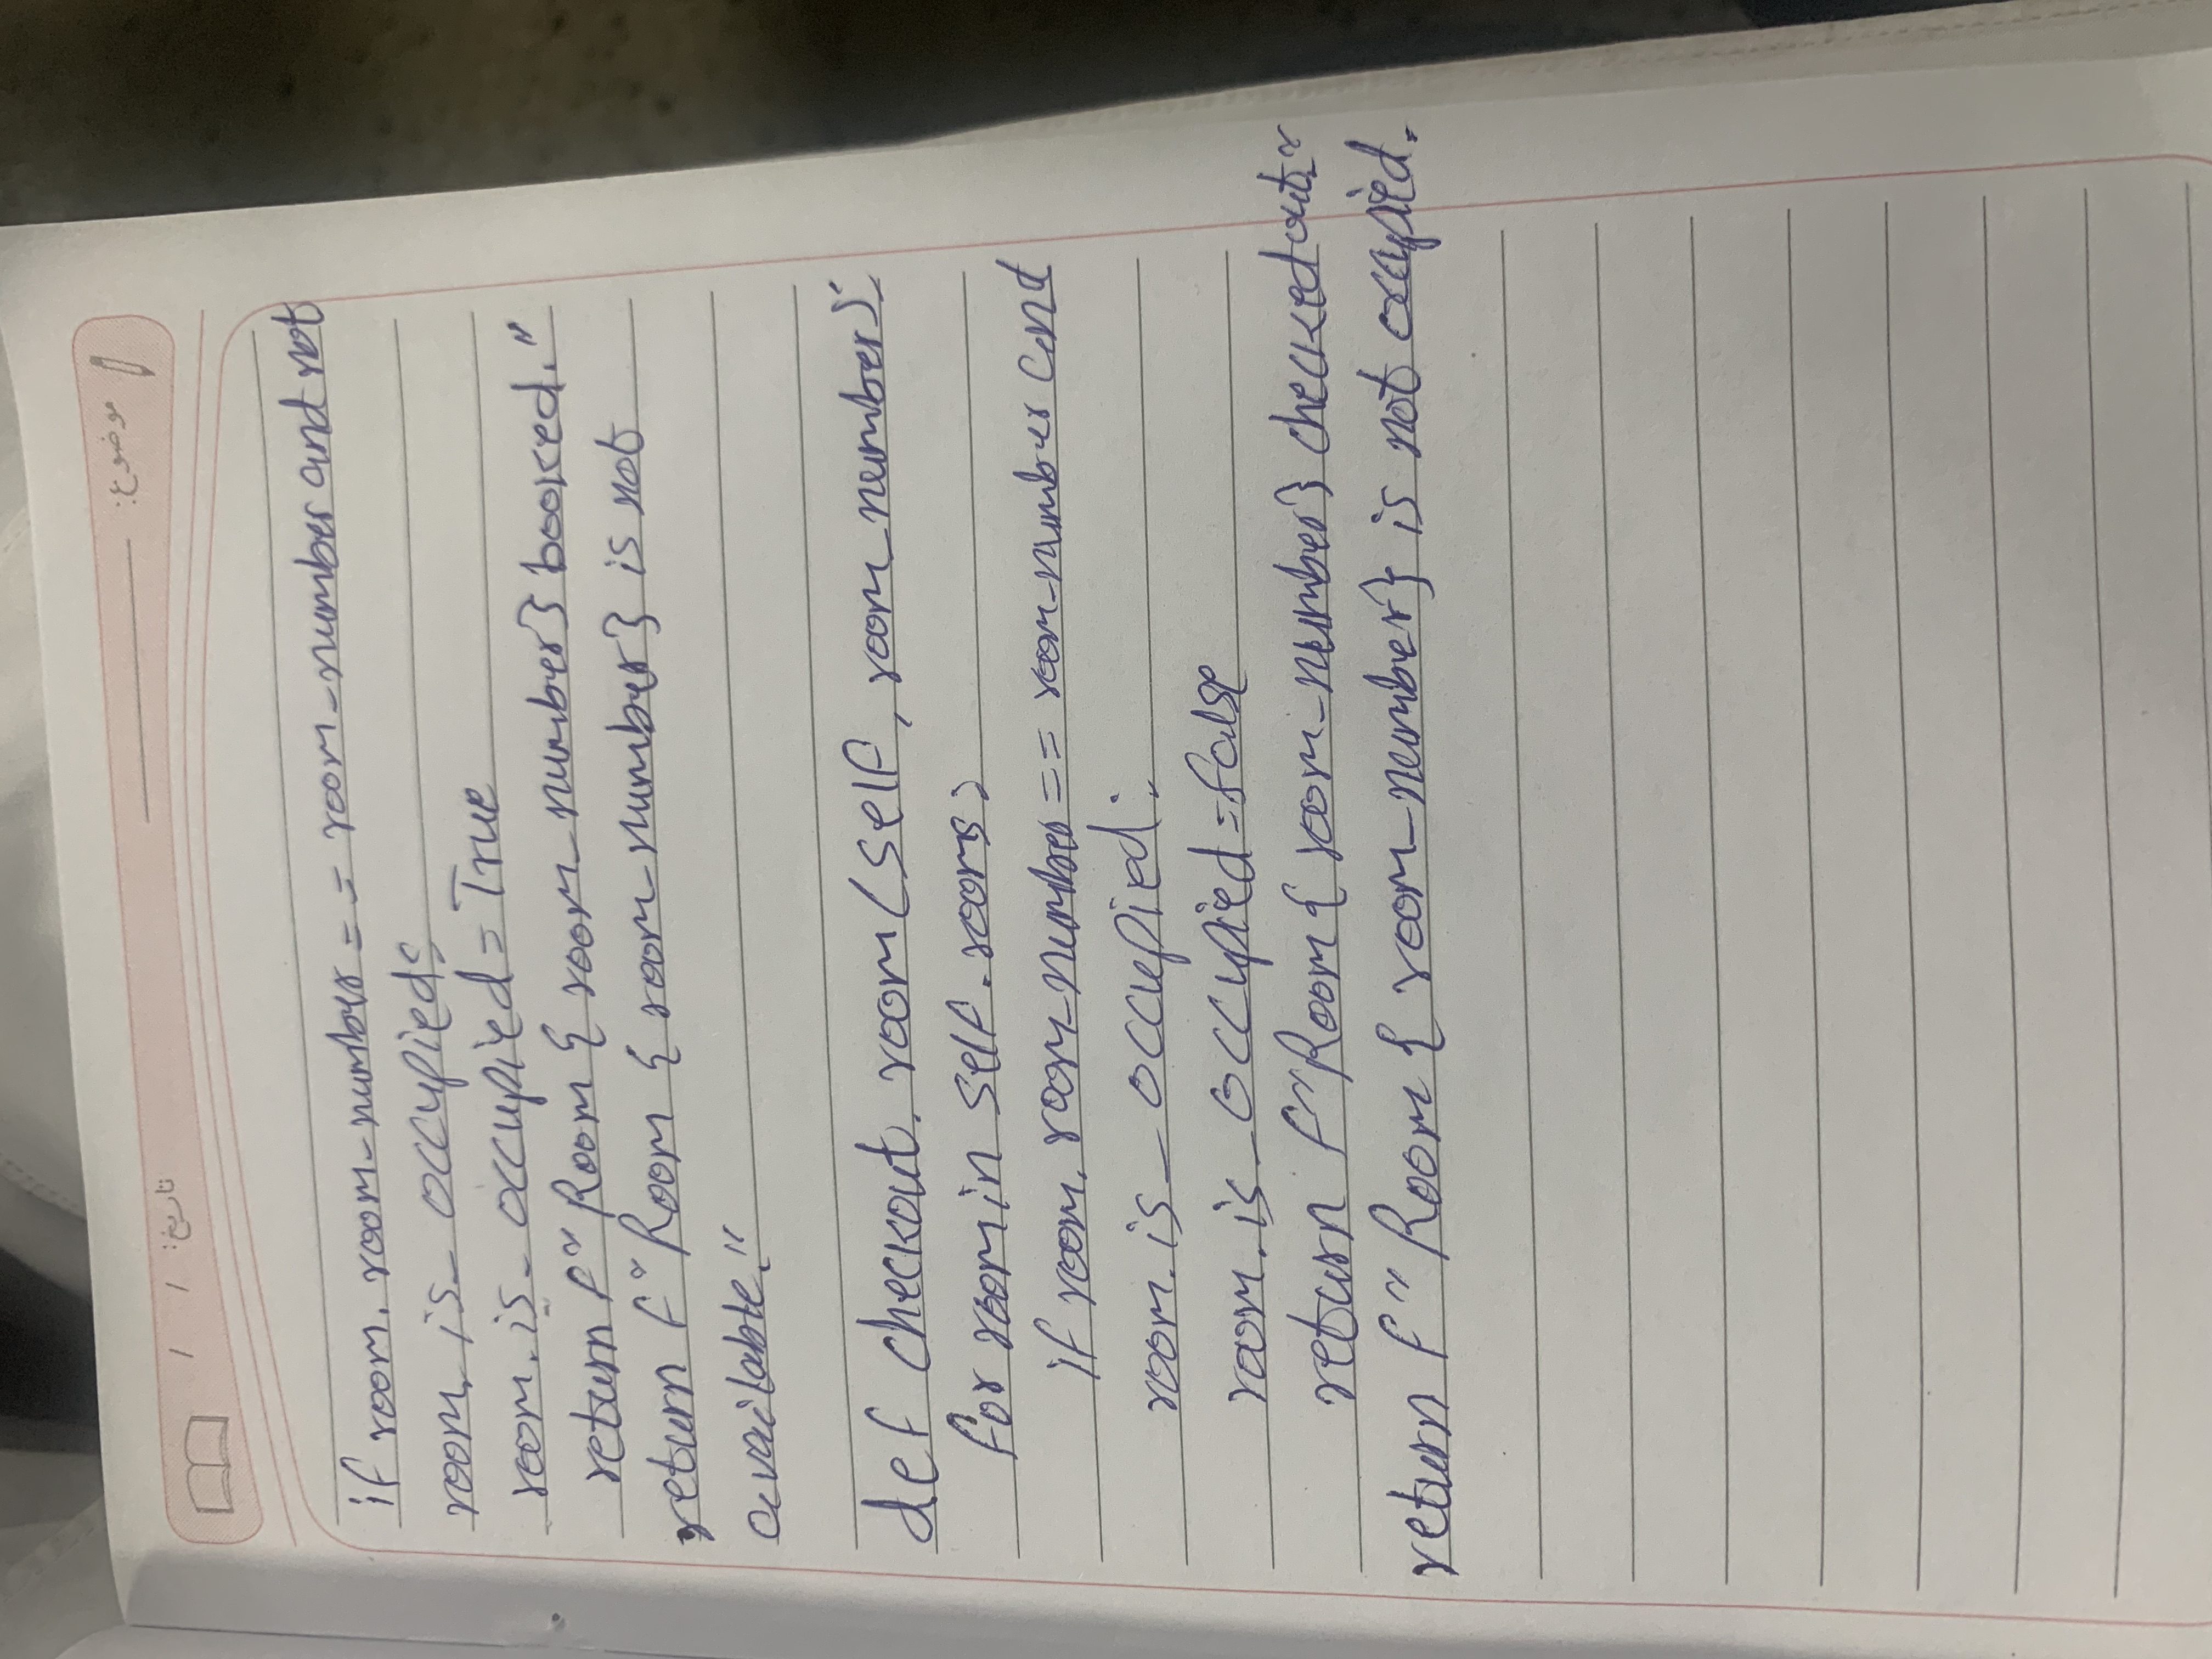 موضوع:
تاريخ: / /
if room. room-number == room-number and not
room. is_ occupied:
room. is_ occupied = True
return f" Room { room_number} booked."
return f" Room { room_number} is not
available."
def checkout. room (self, room_number):
for room in self. rooms:
if room. room_number == room-number and
room. is _ occupied:
room. is _ occupied = false
return f" Room { room_number} checked out."
return f" Room { room_number} is not occupied.